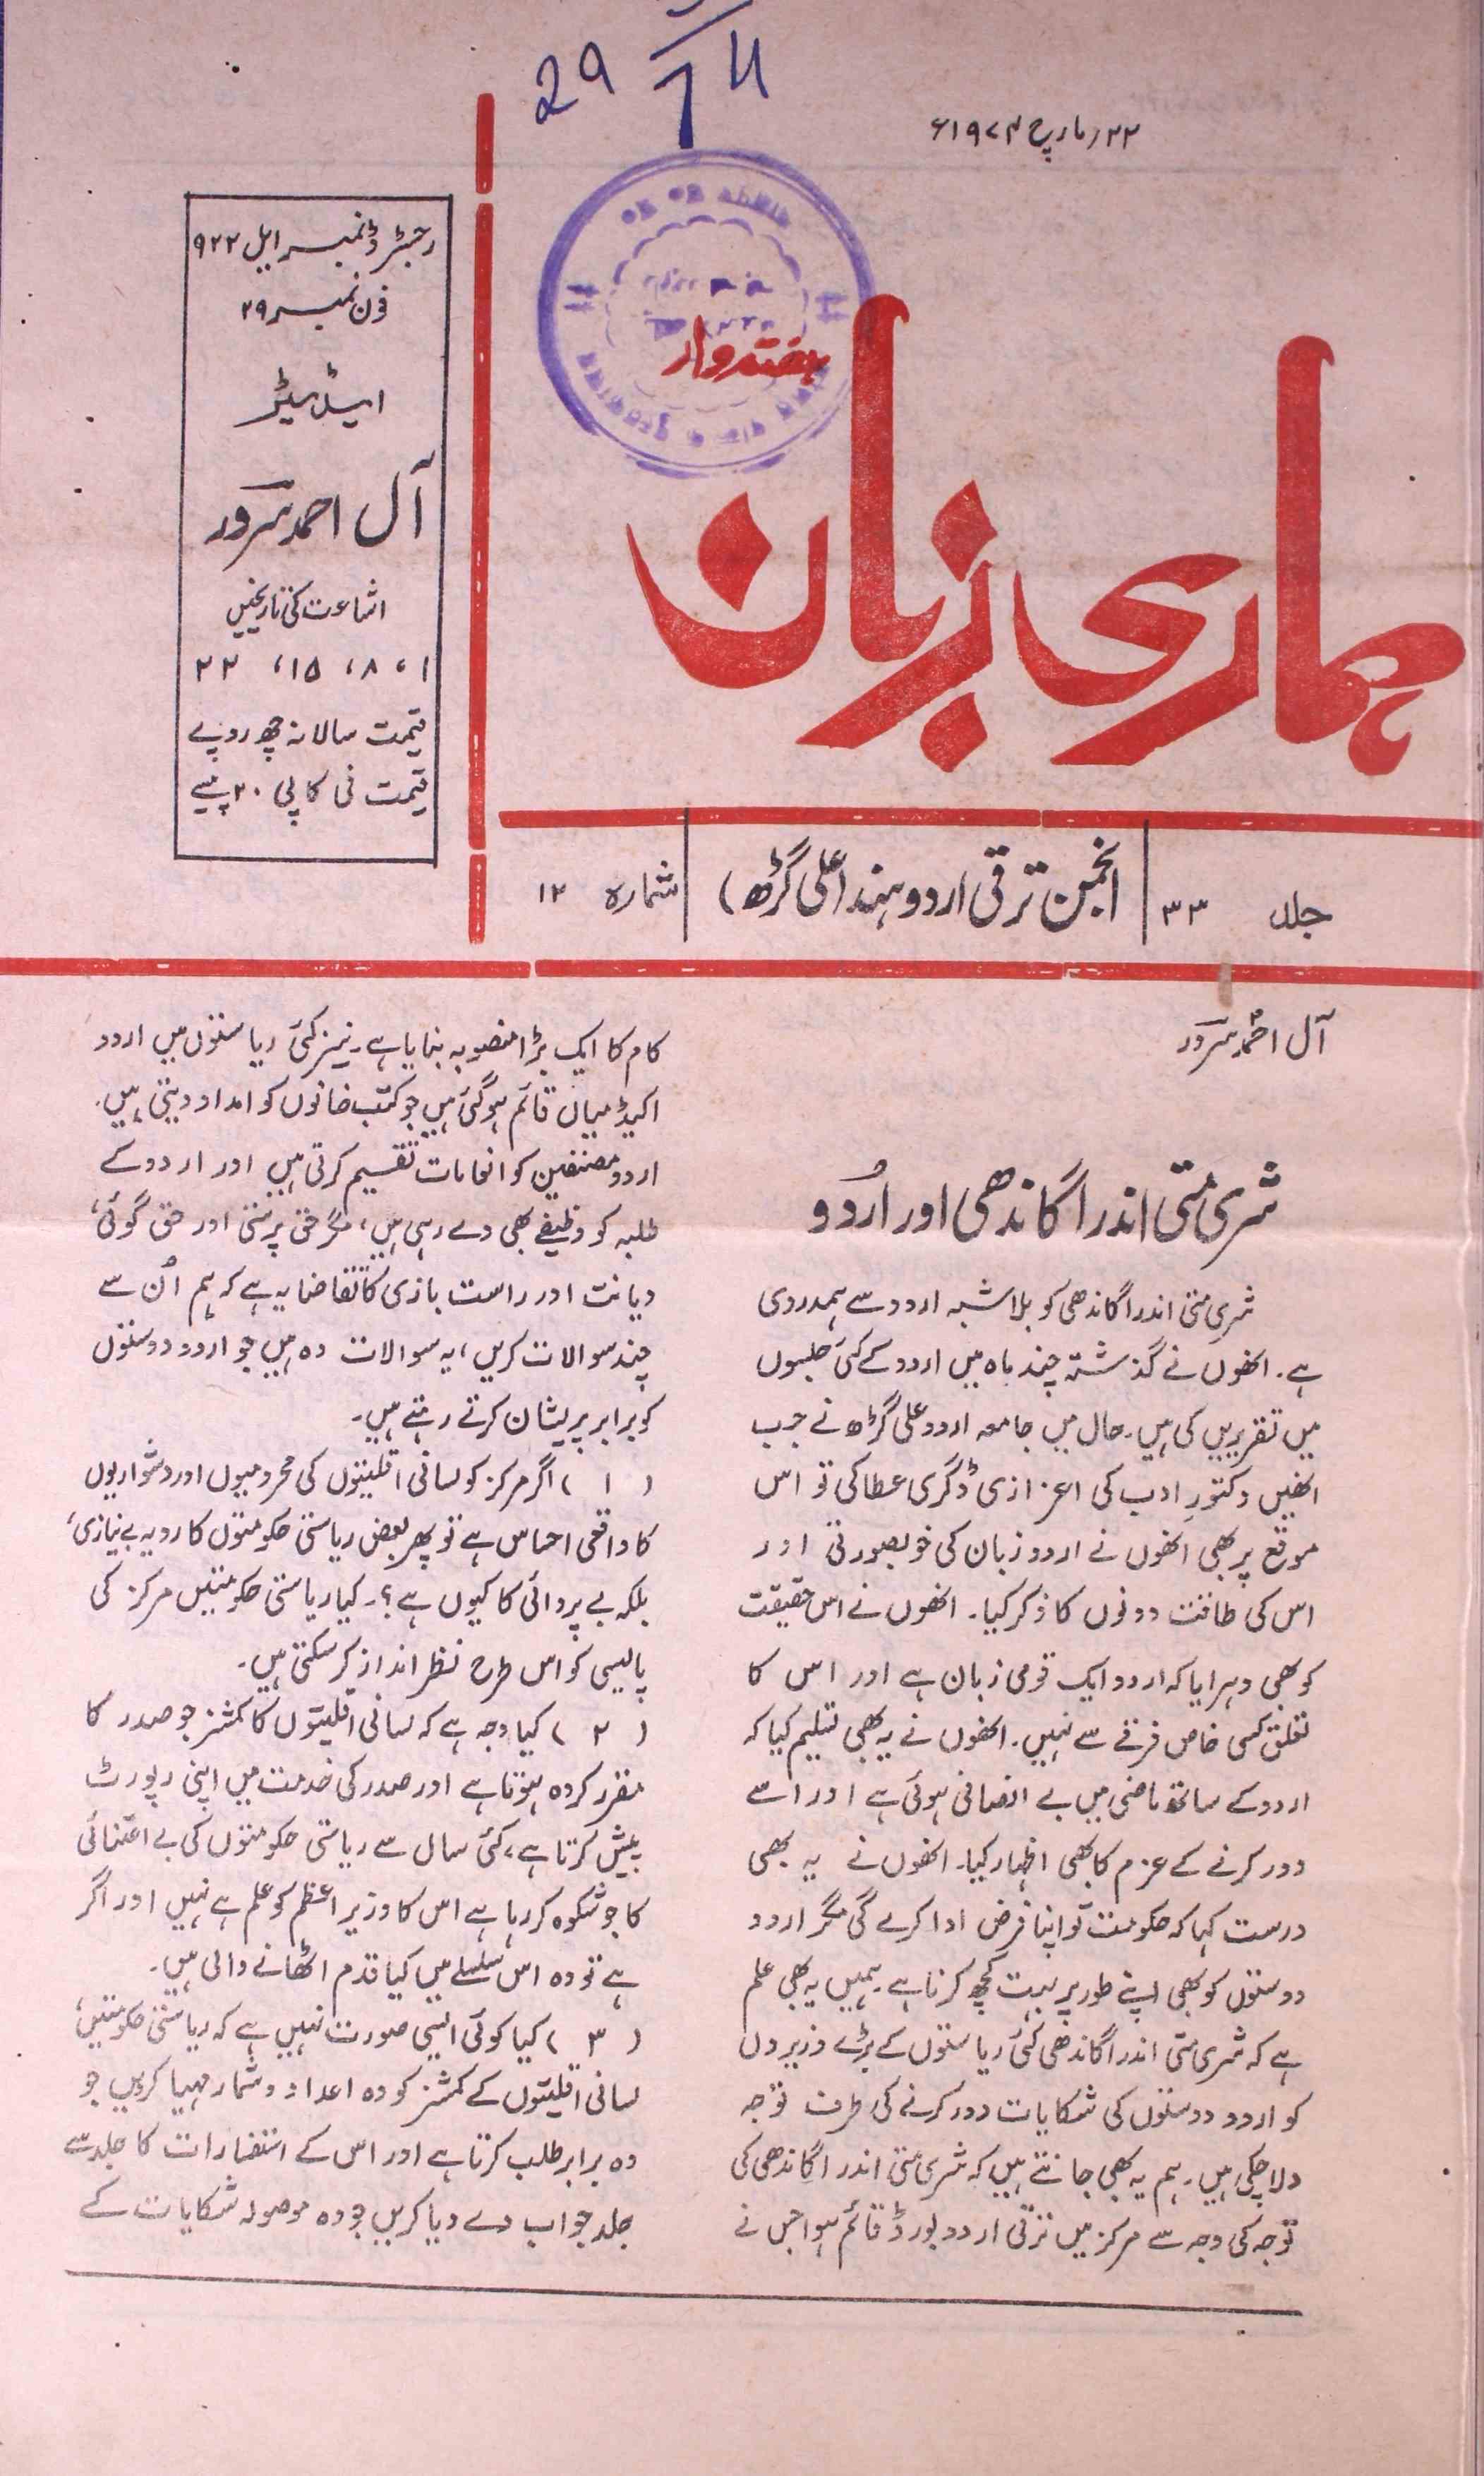 29/7 4
۲۲؍ مارچ ۱۹۷۴ء
ہفتہ وار
ہماری زبان
رجسٹرڈ نمبر ایل ۹۲۲
فون نمبر ۲۹
ایڈیٹر
آل احمد سرور
اشاعت کی تاریخیں
۱، ۸، ۱۵، ۲۲
قیمت سالانہ چھ روپے
قیمت فی کاپی ۲۰ پیسے
جلد ۳۳
انجمن ترقی اردو ہند (علی گڑھ)
شمارہ ۱۲
آل احمد سرور
شری متی اندرا گاندھی اور اُردو
شری متی اندرا گاندھی کو بلاشبہ اردو سے ہمدردی
ہے۔ انھوں نے گذشتہ چند ماہ میں اردو کے کئی جلسوں
میں تقریریں کی ہیں۔ حال میں جامعہ اردو علی گڑھ نے جب
انھیں دکتورِ ادب کی اعزازی ڈگری عطا کی تو اس
موقع پر بھی انھوں نے اردو زبان کی خوبصورتی اور
اس کی طاقت دونوں کا ذکر کیا۔ انھوں نے اس حقیقت
کو بھی دہرایا کہ اردو ایک قومی زبان ہے اور اس کا
تعلق کسی خاص فرقے سے نہیں۔ انھوں نے یہ بھی تسلیم کیا کہ
اردو کے ساتھ ماضی میں بے انصافی ہوئی ہے اور اسے
دور کرنے کے عزم کا بھی اظہار کیا۔ انھوں نے یہ بھی
درست کہا کہ حکومت تو اپنا فرض ادا کرے گی مگر اردو
دوستوں کو بھی اپنے طور پر بہت کچھ کرنا ہے۔ ہمیں یہ بھی علم
ہے کہ شری متی اندرا گاندھی کئی ریاستوں کے بڑے وزیروں
کو اردو دوستوں کی شکایات دور کرنے کی طرف توجہ
دلا چکی ہیں۔ ہم یہ بھی جانتے ہیں کہ شری متی اندرا گاندھی کی
توجہ کی وجہ سے مرکز میں ترقی اردو بورڈ قائم ہوا جس نے
کام کا ایک بڑا منصوبہ بنایا ہے۔ نیز کئی ریاستوں میں اردو
اکیڈمیاں قائم ہو گئی ہیں جو کتب خانوں کو امداد دیتی ہیں،
اردو مصنفین کو انعامات تقسیم کرتی ہیں اور اردو کے
طلبہ کو وظیفے بھی دے رہی ہیں، مگر حق پرستی اور حق گوئی،
دیانت اور راست بازی کا تقاضا یہ ہے کہ ہم اُن سے
چند سوالات کریں، یہ سوالات وہ ہیں جو اردو دوستوں
کو برابر پریشان کرتے رہتے ہیں۔
(۱) اگر مرکز کو لسانی اقلیتوں کی محرومیوں اور دشواریوں
کا واقعی احساس ہے تو پھر بعض ریاستی حکومتوں کا رویہ بے نیازی،
بلکہ بے پروائی کا کیوں ہے؟۔ کیا ریاستی حکومتیں مرکز کی
پالیسی کو اس طرح نظر انداز کر سکتی ہیں۔
(۲) کیا وجہ ہے کہ لسانی اقلیتوں کا کمشنر جو صدر کا
مقرر کردہ ہوتا ہے اور صدر کی خدمت میں اپنی رپورٹ
پیش کرتا ہے، کئی سال سے ریاستی حکومتوں کی بے اعتنائی
کا جو شکوہ کر رہا ہے اس کا وزیر اعظم کو علم ہے نہیں اور اگر
ہے تو وہ اس سلسلے میں کیا قدم اٹھانے والی ہیں۔
(۳) کیا کوئی ایسی صورت نہیں ہے کہ ریاستی حکومتیں،
لسانی اقلیتوں کے کمشنر کو وہ اعداد و شمار مہیا کریں جو
وہ برابر طلب کرتا ہے اور اس کے استفسارات کا جلد سے
جلد جواب دے دیا کریں جو وہ موصولہ شکایات کے